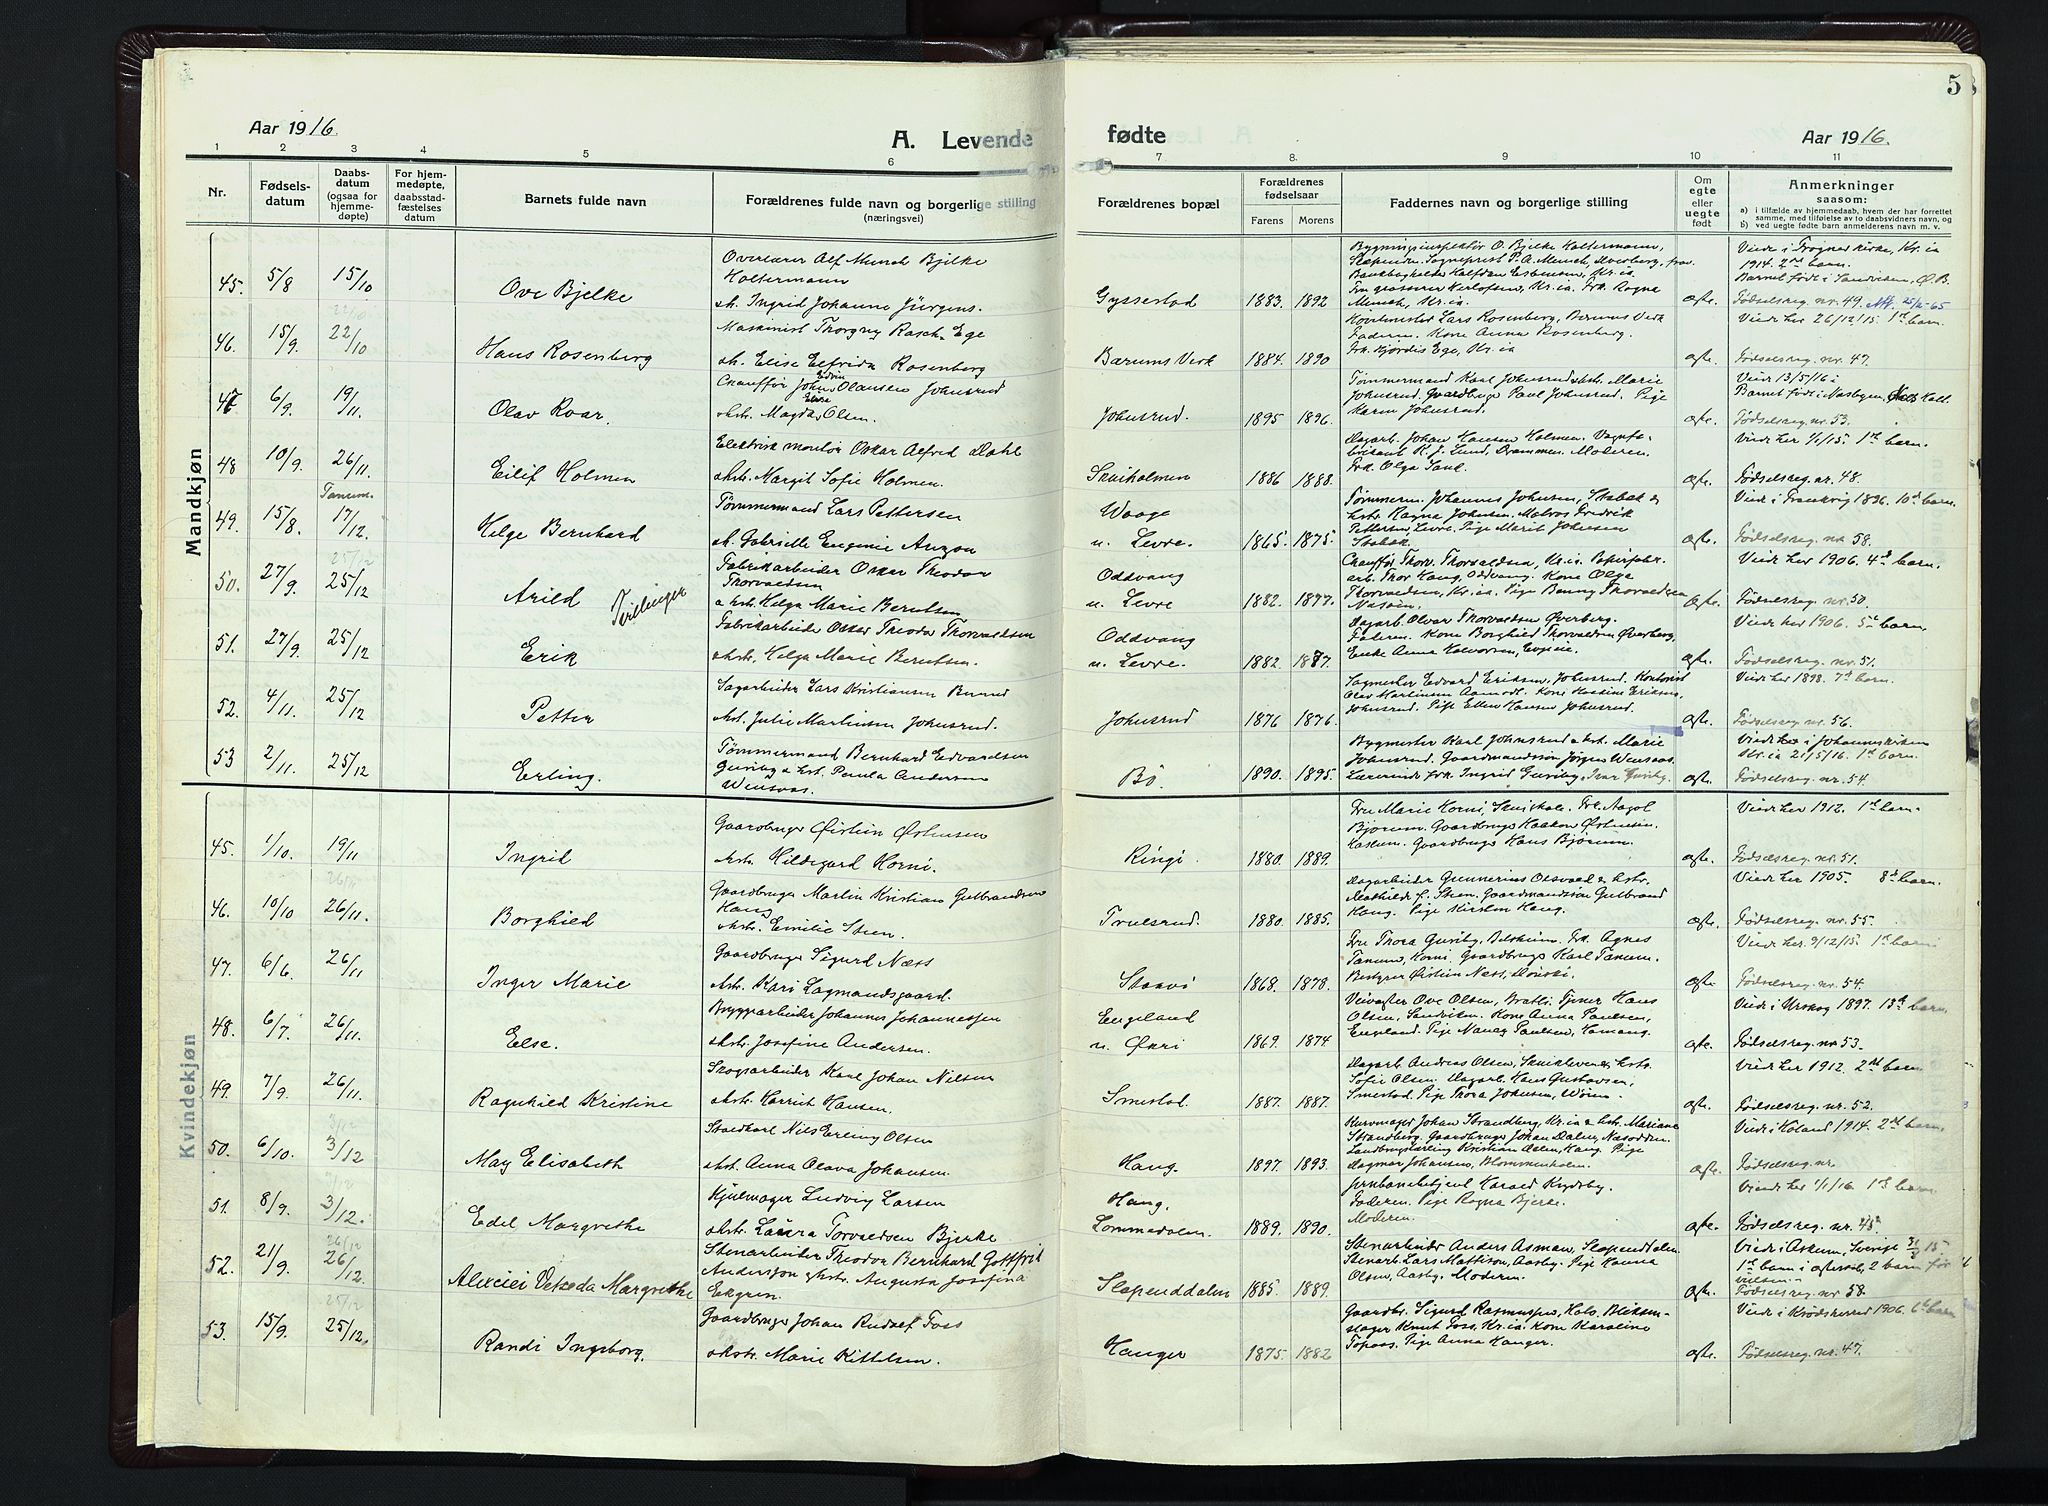 Aar 1916.
A. Levende fødte
5
Aar 1916.
1 2 3 4 5 6 7 8. 9 10 11
Nr.
Fødsels-
datum
Daabs-
datum
(ogsaa for
hjemme-
døpte)
For hjem-
medøpte,
daabsstad-
fæstelses
datum
Barnets fulde navn
Forældrenes fulde navn og borgerlige stilling
(næringsvei)
Forældrenes bopæl
Forældrenes
fødselsaar
Farens Morens
Faddernes navn og borgerlige stilling
Om
egte
eller
uegte
født
Anmerkninger
saasom:
a) i tilfælde av hjemmedaab, hvem der har forrettet
samme, med tilføielse av to daabsvidners navn, og
b) ved uegte fødte barn anmelderens navn m. v.
Mandkjøn
45. 5/8 15/10 Ove Bjelke
Overlærer Alf Munch Bjelke
Holtermann
Ingrid Johanne Jürgens.
Gyssestad 1883. 1892
Bygningsinspektør O. Bjelke Holtermann,
ægte.
Viede i Frogner kirke, Kr.ia
1914. 2det barn.
Barnet født i Sandviken, Ø. B.
Fødselsreg. nr. 49.
46. 15/9. 22/10 Hans Rosenberg
Maskinist Thorgny Rasch Ege
Elise Elfrida Rosenberg
Bærums Verk 1884. 1890
Lars Rosenberg, Bærums Verk
Faderen. Kone Anna Rosenberg.
Frk. Hjørdis Ege, Kr.ia
ægte.
Viede her 26/12/15. 1ste barn.
Fødselsreg. nr. 47.
47 6/9. 19/11. Olav Roar.
Chauffør John Edvin Olausen Johnsrud
Magda Elise Olsen.
Johnsrud. 1895 1896.
Tømmermand Karl Johnsrud & hstr. Marie
Johnsrud. Gaardbruger Paul Johnsrud. Pige
Karen Johnsrud.
ægte.
Viede 13/5/16 i
Fødselsreg. nr. 53.
48 10/9. 26/11. Eilif Holmen
Elektrisk montør Oskar Alfred Dahl
Margit Sofie Holmen.
Skuiholmen 1886 1888.
Dagarb. Johan Hansen Holmen. Vognfa-
brikant K. J. Lund, Drammen. Moderen.
ægte.
Viede her 1/1/15. 1ste barn.
Fødselsreg. nr. 48.
Tanum.
49. 15/8. 17/12. Helge Bernhard
Tømmermand Lars Pettersen
Gabrielle Eugenie Anzon
Waage
n. Levre. 1865. 1875.
Tømmerm. Johannes Johnsen, Stabæk &
hstr. Ragna Johnsen. Matros Fredrik
Pettersen, Levre. Pige Marit Johnsen
Stabæk.
ægte.
Viede i Frankrig 1896. 10de barn.
Fødselsreg. nr. 58.
50. 27/9. 25/12 Arild Tvillinger
Fabrikarbeider Oskar Theodor
Thorvaldsen
& hstr. Helga Marie Berntsen
Oddvang
n. Levre 1882. 1877.
Chauffør Thorv. Thorvaldsen, Kr.ia. Papirfabr.
arb. Thor Haug, Oddvang. Kone Olga
ægte.
Viede her 1906. 4de barn.
Fødselsreg. nr. 50.
51. 27/9. 25/12 Erik
Fabrikarbeider Oskar Theodor Thorvaldsen
& hstr. Helga Marie Berntsen.
Oddvang
n. Levre. 1882. 1887.
Dagarb. Olvar Thorvaldsen Øverberg.
Faderen. Kone Borghild Thorvaldsen Øverberg.
ægte.
Viede her 1906. 5te barn.
Fødselsreg. nr. 51.
52. 4/11. 25/12 Petter
Sagarbeider Lars Kristiansen
& hstr. Julie Martinsen Johnsrud.
Johnsrud 1876 1876.
Sagmester Edvard Eriksen, Johnsrud. Kontorist
Johnsrud. Pige Ellen Hansen Johnsrud.
ægte.
Viede her 1898. 7de barn.
Fødselsreg. nr. 56.
53 2/11. 25/12 Erling.
Tømmermand Bernhard Edvardsen
Guriby & hstr. Paula Andersen
Wensaas.
Bö. 1890. 1895.
Bygmester Karl Johnsrud & hstr. Marie
Johnsrud. Gaardmandssøn Jørgen Wensaas.
Lærerinde frk. Ingrid Guriby. Ivar Guriby.
ægte.
Viede i Johanneskirken
Kr.ia 21/5/16. 1ste barn.
Fødselsreg. nr. 54.
Kvindekjøn
45. 1/10. 19/11 Ingrid
Gaardbruger Østein Østensen
& hstr. Hildegard Horni.
Ringi. 1880. 1889.
Fru Marie Horni, Skuistad. Frk. Aagot
Bjørum. Gaardbruger Haakon Østensen.
Haslum. Gaardbruger Hans Bjørum.
ægte.
Viede her 1912. 1ste barn.
Fødselsreg. nr. 51.
46. 10/10 26/11. Borghild
Gaardbruger Martin Kristian Gulbrandsen
Haug
& hstr. Emilie Steen.
Trulsrud. 1880. 1885.
Dagarbeider Gunnerius Olsvold & hstr.
Haug. Pige Kirsten Haug.
ægte.
Viede her 1905. 8de barn.
Fødselsreg. nr. 55.
47. 6/6. 26/11 Inger Marie
Gaardbruger Sigurd Næss
& hstr. Kari Lagmandsgaard.
1868. 1878.
Fru Thora Guriby. Frk. Agnes
Tanum, Horni. Gaardbruger Karl Tanum.
Bestyrer Østein Næss, Dønski.
ægte.
Viede her 9/12/15. 1ste barn
Fødselsreg. nr. 54.
48. 6/7. 26/11. Else.
Bryggearbeider Johannes Johannessen
& hstr. Josefine Andersen.
Engeland
n. Øvri 1869. 1874
Veivogter Ove Olsen, Bratli. Tjener Hans
Olsen, Sandviken. Kone Anna Paulsen,
Engeland. Pige Nancy Paulsen, Hamang.
ægte.
Viede i Urskog 1897. 13de barn.
Fødselsreg. nr. 53.
49. 7/9. 26/11. Ragnhild Kristine
Skogsarbeider Karl Johan Nilsen
& hstr. Harriet Hansen.
Smestad. 1887. 1887.
Dagarb. Andreas Olsen, & hstr.
Sofie Olsen. Dagarb. Hans Gustavsen,
Smestad. Pige Thora Johnsen, Wøien.
ægte.
Viede her 1912. 2det barn
Fødselsreg. nr. 52.
50. 6/10. 3/12 May Elisabeth
Staldkarl Nils Erling Olsen
& hstr. Anna Olava Johansen.
Haug. 1897. 1893.
Kurvmager Johan Strandberg, Kr.ia & hstr. Mariane
Strandberg. Gaardbruger Johan Dalen, Nasodden.
Dagmar Johansen, Blommenholm.
ægte.
Viede i Koland 1914. 2det barn.
Fødselsreg. nr.
51. 8/9. 3/12. Edel Margrethe
Hjulmager Ludvig Larsen
& hstr. Laura Torvaldsen Bjerke
Haug.
Lommedalen. 1889. 1890.
Jernbanebetjent Harald Rydsby.
Faderen. Pige Ragna Bjerke.
Moderen.
ægte.
Viede her 1/1/16. 1ste barn
Fødselsreg. nr. 45
52. 21/9. 26/12.
Stenarbeider Theodor Bernhard Gottfrid
Andersson & hstr. Augusta Josefina
Ekgren.
Slependdalen 1885. 1889.
Stenarbeider Anders Asman, Slependdalen.
Stenarb. Lars Mattison, Aasby. Pige Hanna
Olsen, Aasby. Moderen.
ægte.
Viede i Askum, Sverige
1ste barn i ægtesk., 2 barn før
vielsen.
Fødselsreg. nr 58.
53. 15/9. 25/12. Randi Ingeborg.
Gaardbruger Johan Rudolf Foss
& hstr. Marie Kittelsen.
Hanger 1875. 1882
Gaardbr. Sigurd Rasmussen, Blikken-
slager Knut Foss, Kr.ia. Kone Karoline
Topaas. Pige Anna Hanger.
ægte.
Viede i Krødsherred 1906. 6te barn
Fødselsreg. nr. 47.